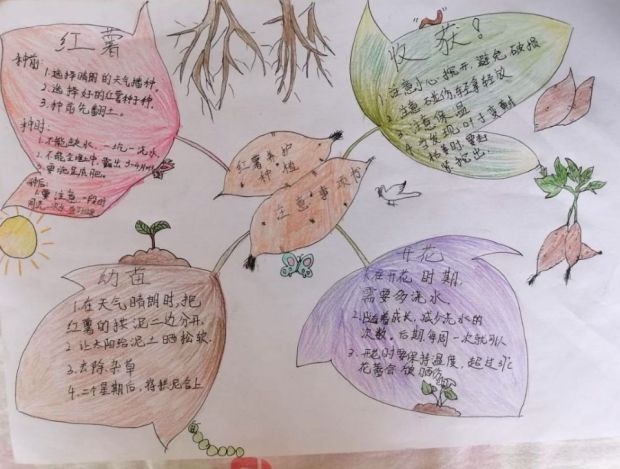 红薯
种前:
1.选择晴朗的天气播种。
2.选择好的红薯种子种。
3.种前先翻土。
种时:
1.不能缺水,一坑一浇水
2.不能全埋上,露出3-4厘米
3.要施足底肥。
种后:
1.要注意一段时
红薯养护
种植
注意事项
收获?
1.注意小心挖开,避免破损
2.注意碰伤,轻拿轻放
3.注意保温
4.当发现叶子变
幼苗
1.在天气晴朗时,把
红薯的接泥二边分开,
2.让太阳给泥土晒松软.
3.去除杂草
4.二个星期后,将接泥合上
开花
1.在开花时期,
需要多浇水。
2.随着成长,减少浇水的
次数。后期每周一次就可以
3.开花时要保持温度,超过
花蕾会